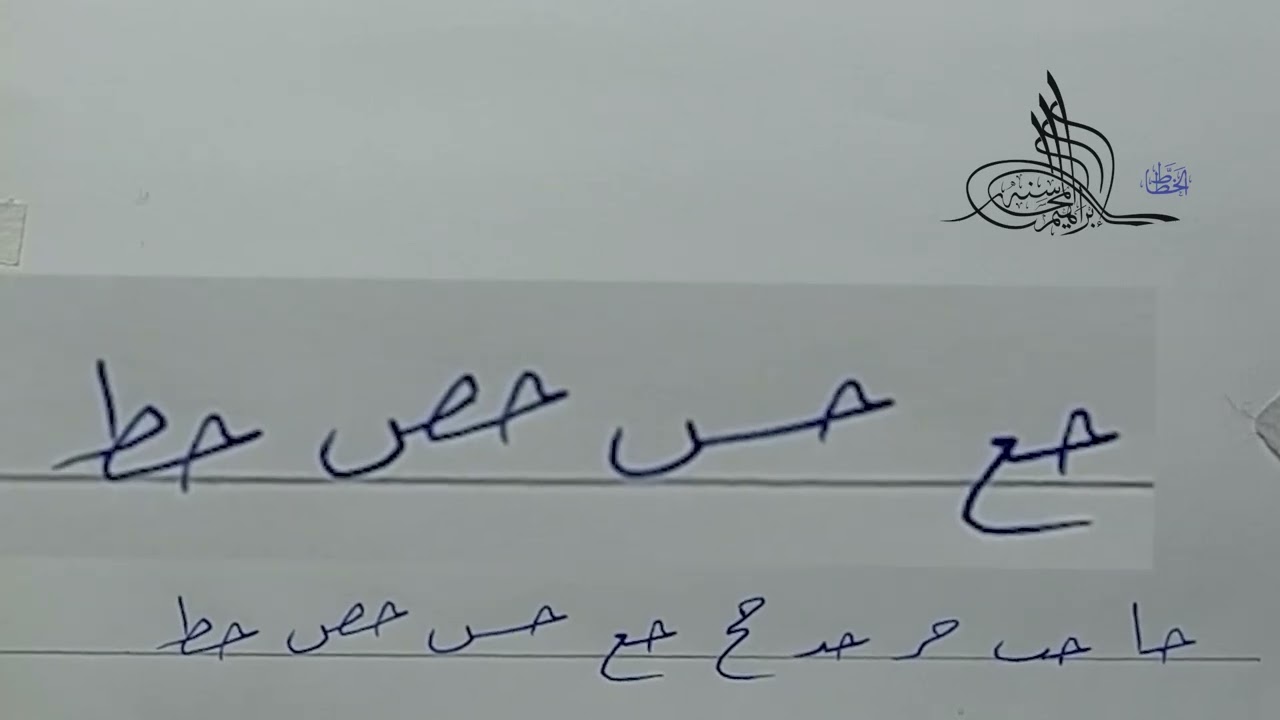 الخطاط
إبراهيم المحاسنه
حع حس حص حط
حا حب حر حد حج حع حس حص حط